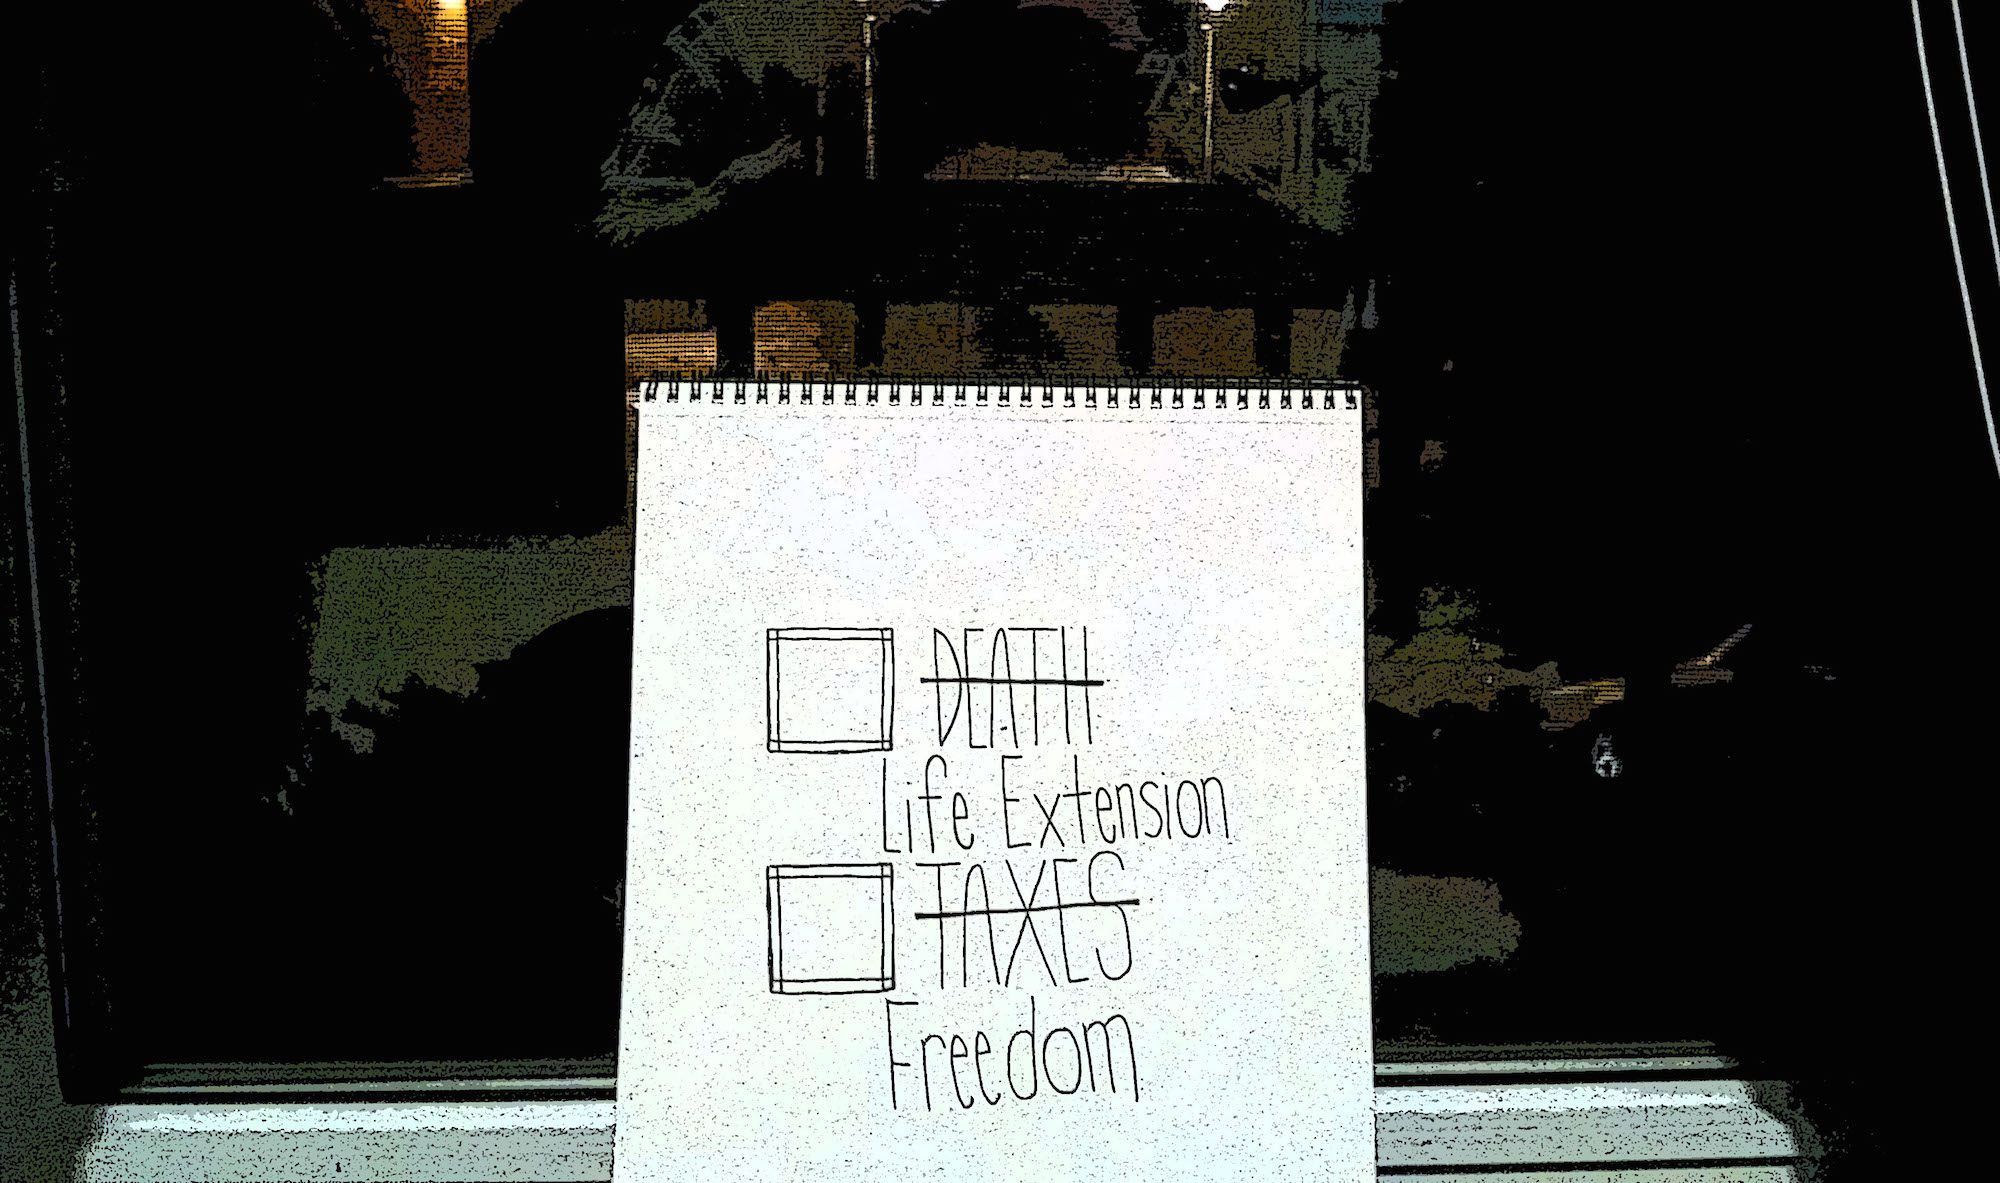 DEATH
Life Extension
TAXES
Freedom